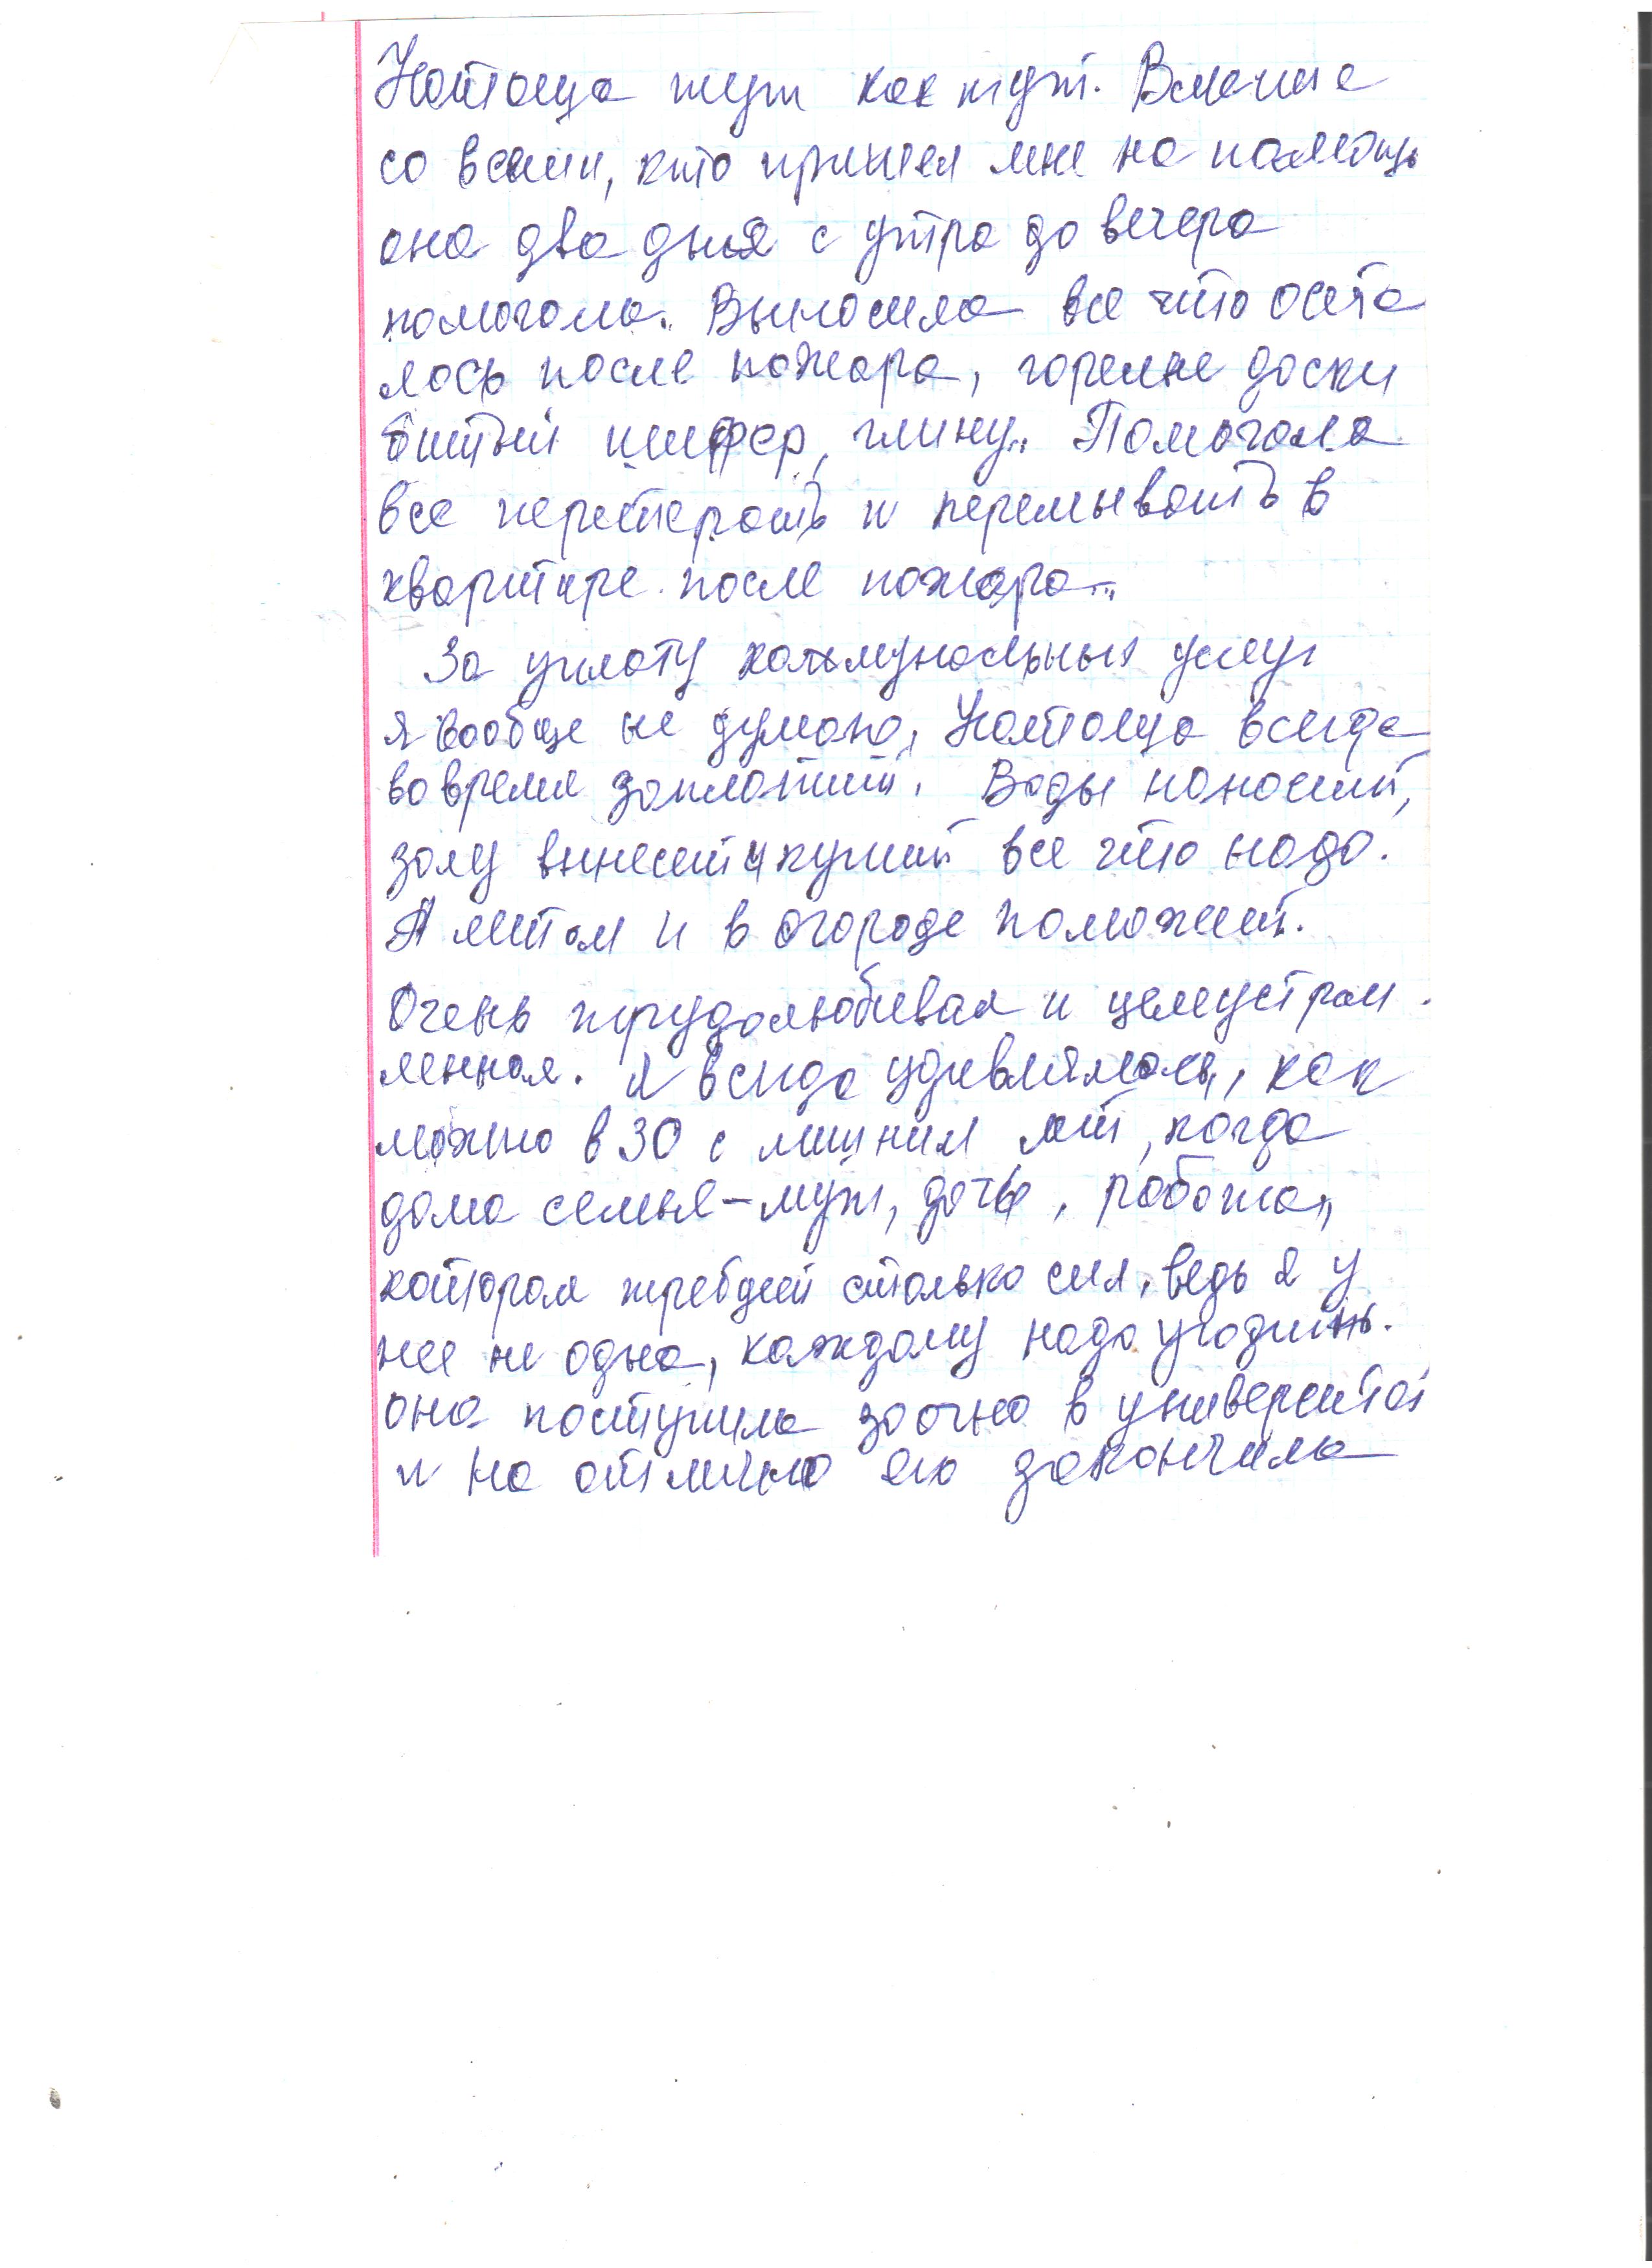 Наташа тут как тут. Вместе
со всеми, кто пришел мне на помощь
она два дня с утра до вечера
помогала. Выносила все что оста
лось после пожара, горелые доски
битый шифер, глину.. Помогала
все перетирать и перемывать в
квартире после пожара...
За уплату коммунальных услуг
я вообще не думаю, Наташа всегда
во время заплатит. Воды наносит,
золу вынесет и купит все что надо.
А летом и в огороде поможет.
Очень трудолюбивая и целеустрем
ленная. Я всегда удивлялась, как
можно в 30 с лишним лет, когда
дома семья – муж, дочь, работа,
которая требует столько сил, ведь я у
нее не одна, каждому надо угодить.
она поступила заочно в университет
и на отлично его закончила